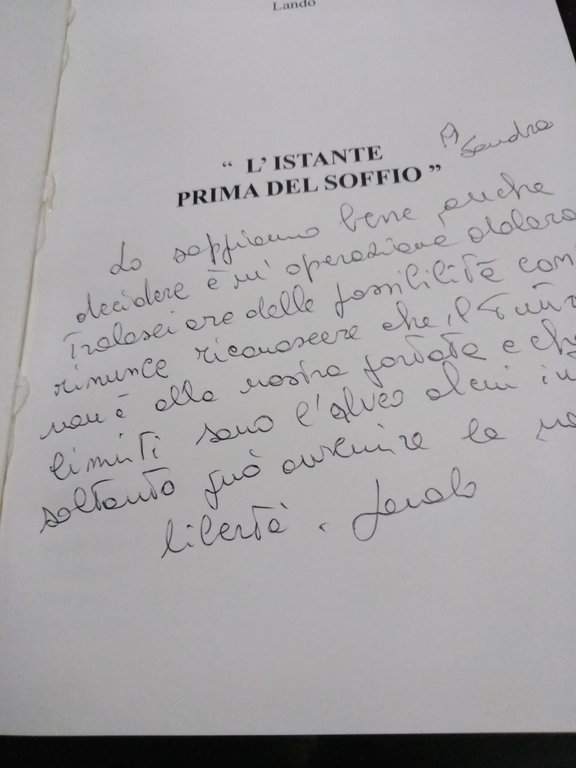 Lando
A Sandra
“ L’ ISTANTE
PRIMA DEL SOFFIO ”
Lo sappiamo bene, anche
decidere è un' operazione
Tralasciare delle possibilità
rinunce riconoscere che il
non è alla nostra portata e che
limiti sono l'alveo
soltanto può avvenire la
libertà.